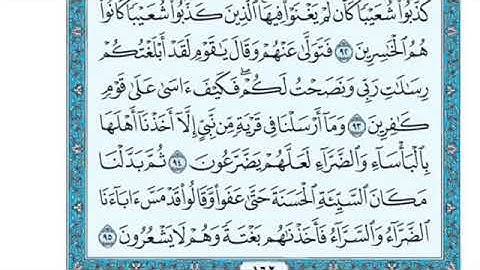 كَذَّبُواْ شُعَيۡبٗا كَأَن لَّمۡ يَغۡنَوۡاْ فِيهَاۚ ٱلَّذِينَ كَذَّبُواْ شُعَيۡبٗا كَانُواْ
هُمُ ٱلۡخَٰسِرِينَ ٩٢ فَتَوَلَّىٰ عَنۡهُمۡ وَقَالَ يَٰقَوۡمِ لَقَدۡ أَبۡلَغۡتُكُمۡ
رِسَٰلَٰتِ رَبِّي وَنَصَحۡتُ لَكُمۡۖ فَكَيۡفَ ءَاسَىٰ عَلَىٰ قَوۡمٖ
كَٰفِرِينَ ٩٣ وَمَآ أَرۡسَلۡنَا فِي قَرۡيَةٖ مِّن نَّبِيٍّ إِلَّآ أَخَذۡنَآ أَهۡلَهَا
بِٱلۡبَأۡسَآءِ وَٱلضَّرَّآءِ لَعَلَّهُمۡ يَضَّرَّعُونَ ٩٤ ثُمَّ بَدَّلۡنَا
مَكَانَ ٱلسَّيِّئَةِ ٱلۡحَسَنَةَ حَتَّىٰ عَفَواْ وَّقَالُواْ قَدۡ مَسَّ ءَابَآءَنَا
ٱلضَّرَّآءُ وَٱلسَّرَّآءُ فَأَخَذۡنَٰهُم بَغۡتَةٗ وَهُمۡ لَا يَشۡعُرُونَ ٩٥
١٦٢